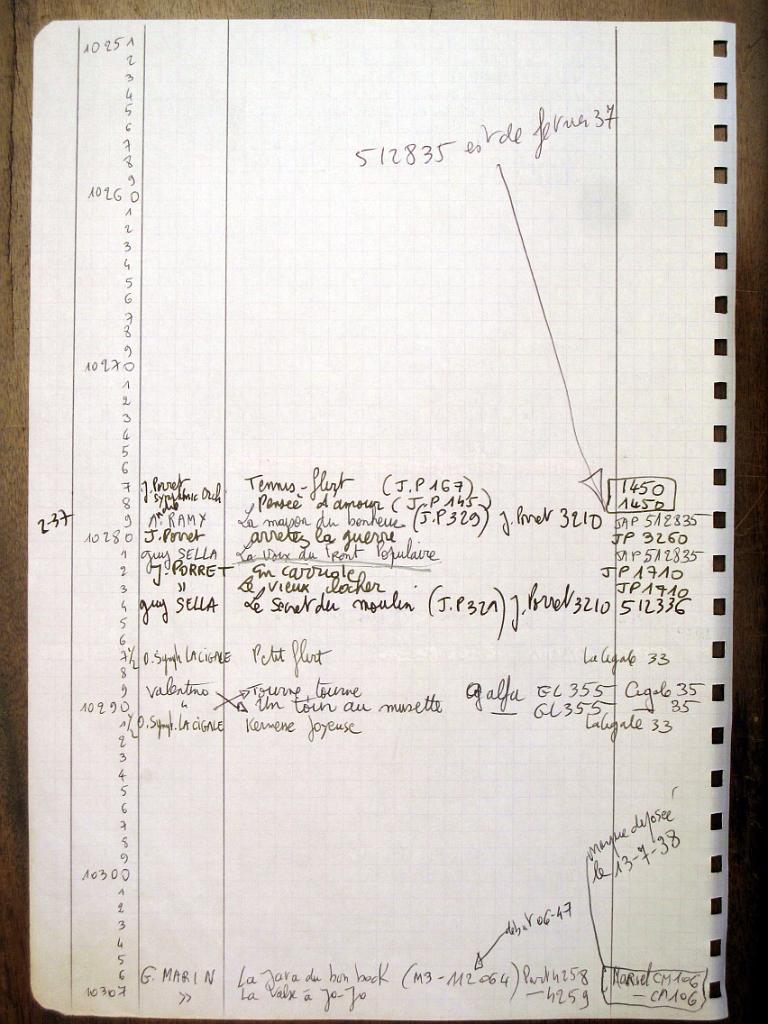 10251
2
3
4
5
6
7
8
9
512835 est de fevrier 37
10260
1
2
3
4
5
6
7
8
9
10270
1
2
3
4
5
6
7 J. Porret Tennis-flirt (J.P 167) 1450
8 Symphonic Orch Pensée d'amour (J.P 145) 1450
2-37 9 André RAMY La maison du bonheur (J.P 329) J. Porret 3210 SAP 512835
10280 J. Porret arretez la guerre JP 3260
1 guy SELLA La voix du Front Populaire SAP 512835
2 J. PORRET En carriole JP 1710
3 " Le vieux clocher JP 1710
4 guy SELLA Le Secret du moulin (J.P 321) J. Porret 3210 512336
5
6
7 1/2 O. Symph LA CIGALE Petit flirt La Cigale 33
8
9 Valentino Tourne, tourne galfa GL 355 Cigale 35
10290 " Un tour au musette — GL 355 — 35
1 1/2 O. Symph. LA CIGALE Kermesse Joyeuse La Cigale 33
2
3
4
5
6
7
8
9
marque déposée
le 13-7-38
10300
1
2
3
4
debut 06-47
5
6 G. MARIN La Java du bon bock (M3-112064) Port 4258 Marsel CM 106
10307 " La Valse à Jo-Jo — 4259 — CM 106